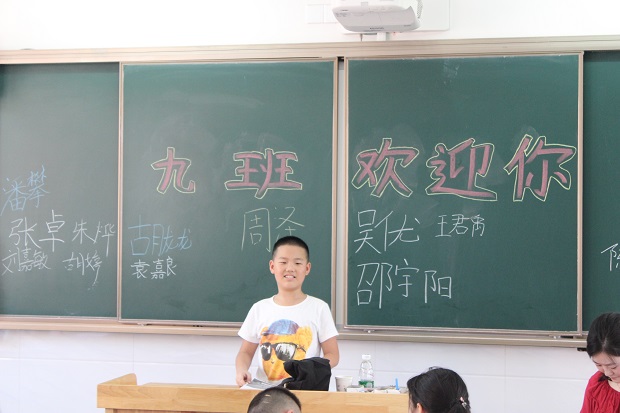 九班 欢迎你
潘攀
张卓 朱烨 胡胧龙 周泽 吴优 王君禹
刘嘉敏 胡婷 袁嘉良 邵宇阳